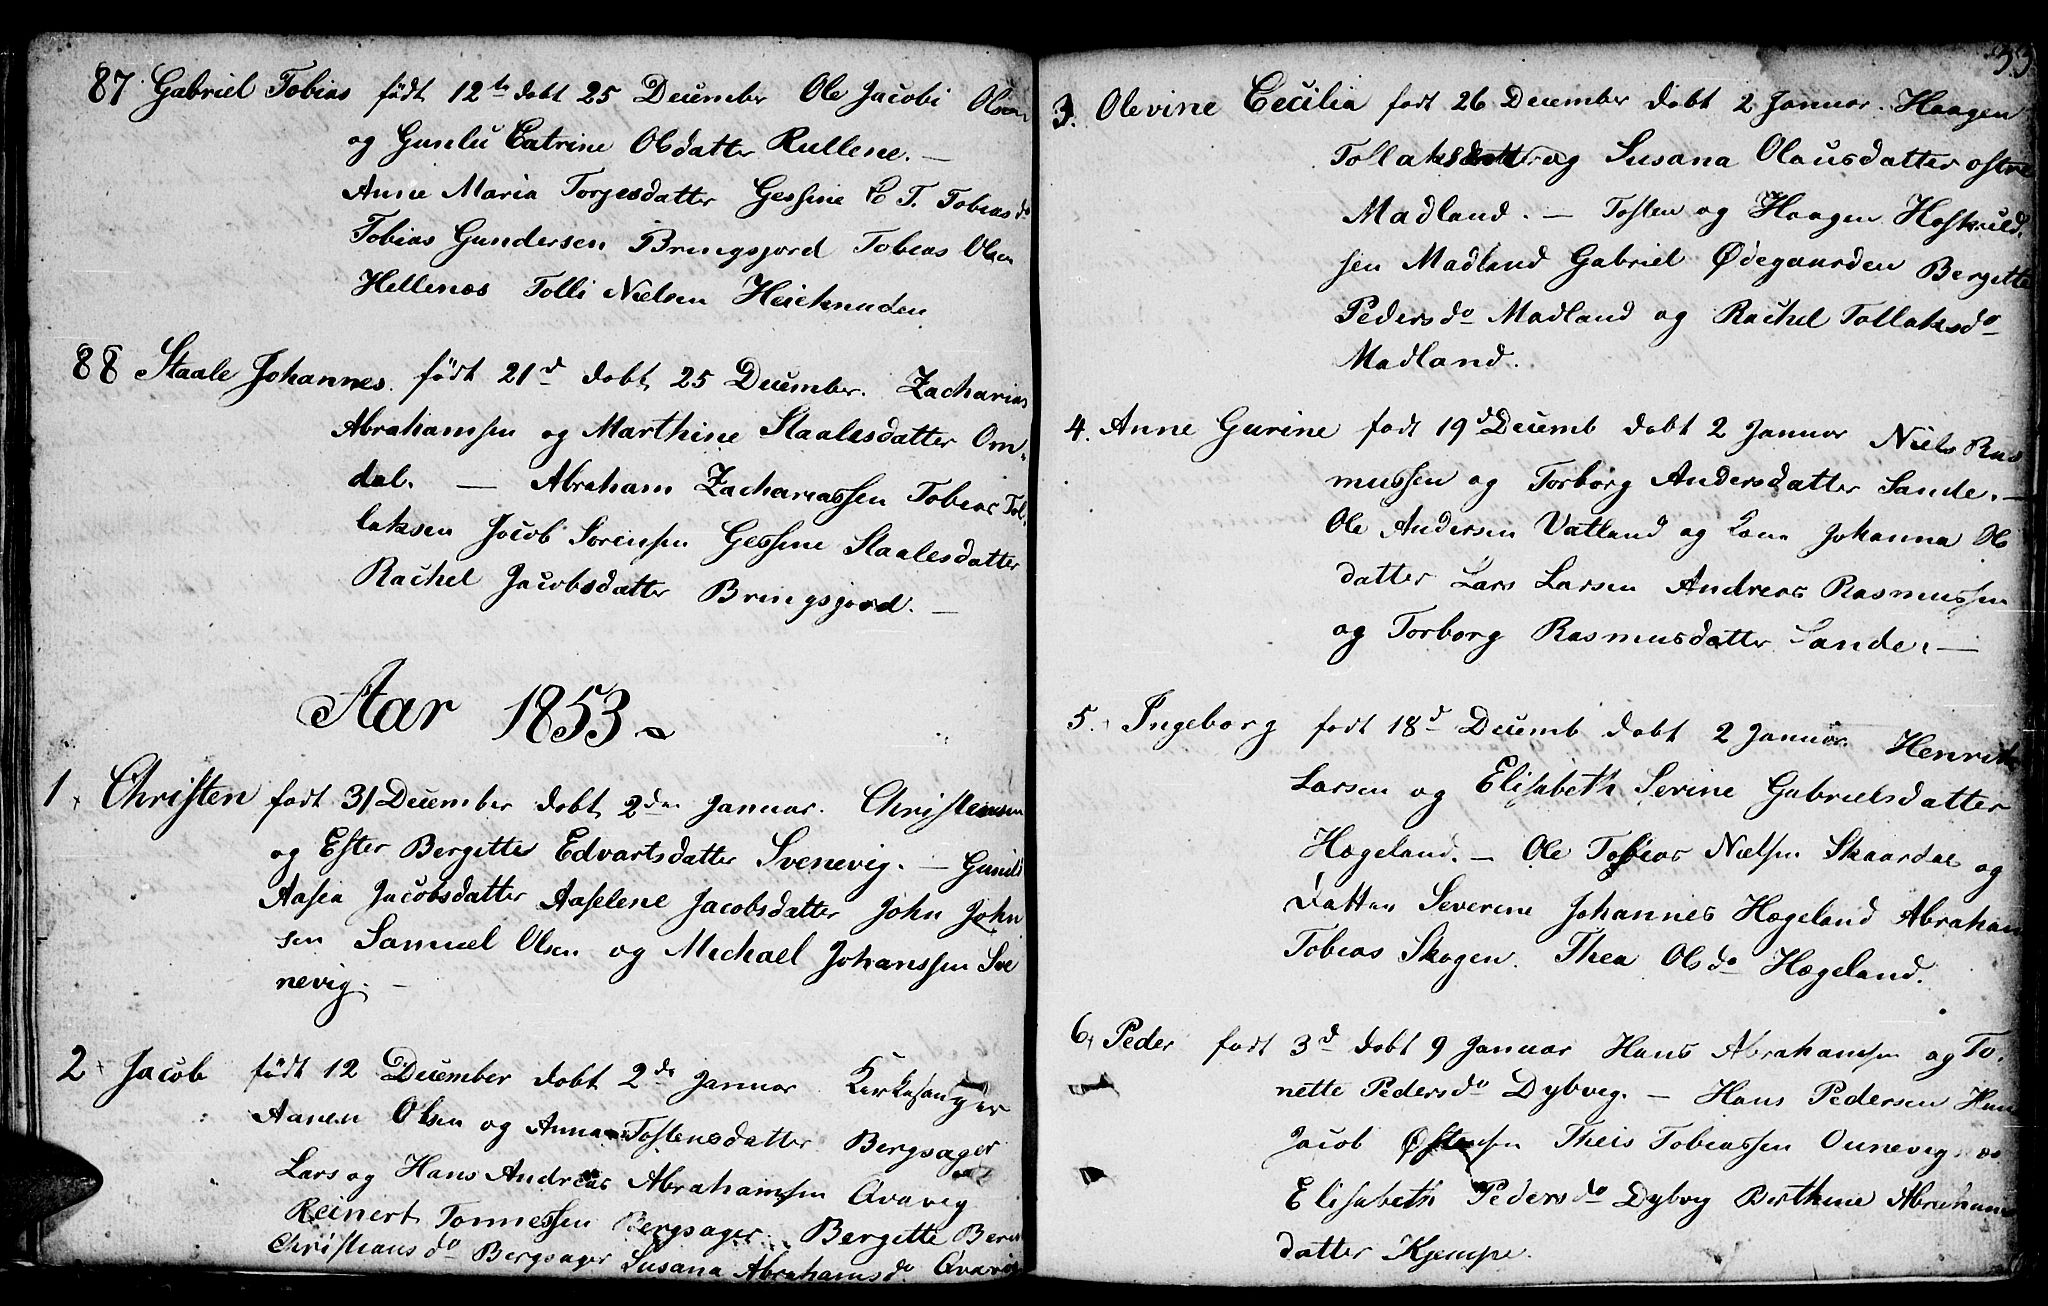 87 Gabriel Tobias født 12te dobt 25 December Ole Jacobi Olsen
og Gunlu Catrine Olsdatter Rullene. —
Anne Maria Torgesdatter Gessine C T. Tobiasdr
Tobias Gundersen Bringsjord Tobias Olsen
Hellenes Tolli Nielsen Heieknuden
88 Staale Johannes. født 21d dobt 25 December. Zacharias
Abrahamsen og Marthine Staalesdatter Om-
dal. — Abraham Zachariassen Tobias Tol-
laksen Jocob Sørensen Gessine Staalesdatter
Rachel Jacobsdatter Bringsjord. —
Aar 1853
1 Christen født 31 December dobt 2den Januar. Christensen
og Ester Bergitte Edvartsdatter Svenevig. — Gunil
Aasia Jacobsdatter Aaselene Jacobsdatter John John
sen Samuel Olsen og Michael Johanssen Sve
nevig. —
2 Jacob født 12 December dobt 2de Januar Kirkesanger
Aanen Olsen og Anna Tostensdatter Bergsager
Lars og Hans Andreas Abrahamsen Avavig
Reinert Tønnessen Bergsager Bergette Bere
Christiansdr Bergsager Susana Abrahamsdr. Avavig
33
3. Olevine Cecilia født 26 December dobt 2 Januar. Haagen
Tollaks og Susana Olausdatter ostre
Madland. — Tosten og Haagen Hoskuld-
sen Madland Gabriel Ødegaarden Bergitte
Pedersdr Madland og Rachel Tollaksdr
Madland.
4. Anne Gurine født 19d Decemb dobt 2 Januar Niels Ras
mussen og Torborg Andersdatter Sande. —
Ole Andersen Vatland og Lena Johanna Ols
datter Lars Larsen Andreas Rasmussen
og Torborg Rasmusdatter Sande. —
5. Ingeborg født 18d Decemb dobt 2 Januar Henrik
Larsen og Elisabeth Serine Gabrielsdatter
Hægeland. — Ole Tobias Nielsen Skaardal og
Datter Severine Johannes Hægeland Abraham
Tobias Skogen. Thea Olsdr Hægeland.
6. Peder født 3d dobt 9 Januar Hans Abrahamsen og To-
nette Pedersdr Dybvig. — Hans Pedersen
Jacob Østensen Theis Tobiassen Ounevig
Elisabeth Pedersdr Dybvg Berthine Abrahams
datter Kjempe.